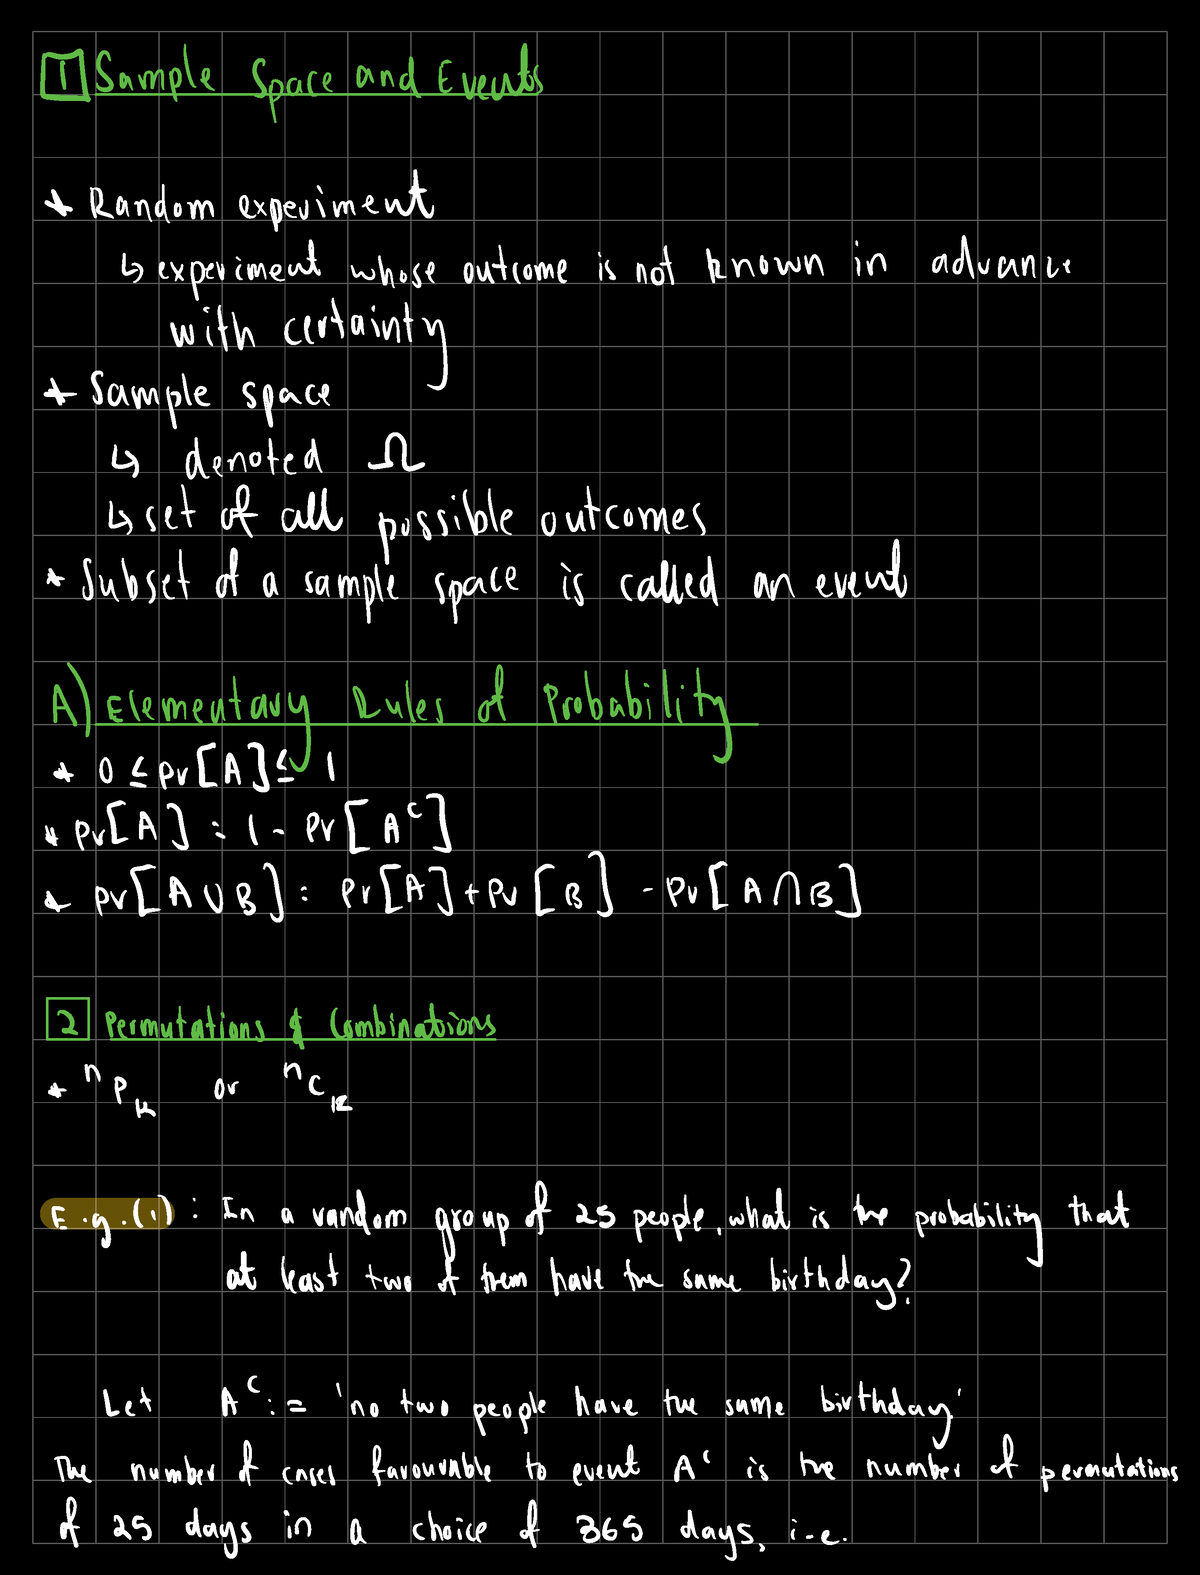 1 Sample Space and Events
* Random experiment
↳ experiment whose outcome is not known in advance
with certainty
* Sample space
↳ denoted Ω
↳ set of all possible outcomes
* Subset of a sample space is called an event
A) Elementary Rules of Probability
* 0 ≤ Pr[A] ≤ 1
* Pr[A] = 1 - Pr[Aᶜ]
* Pr[A ∪ B] = Pr[A] + Pr[B] - Pr[A ∩ B]
2 Permutations & Combinations
* ⁿPₖ or ⁿCₖ
E.g.(1) : In a random group of 25 people, what is the probability that
at least two of them have the same birthday?
Let Aᶜ := 'no two people have the same birthday'
The number of cases favourable to event Aᶜ is the number of permutations
of 25 days in a choice of 365 days, i.e.